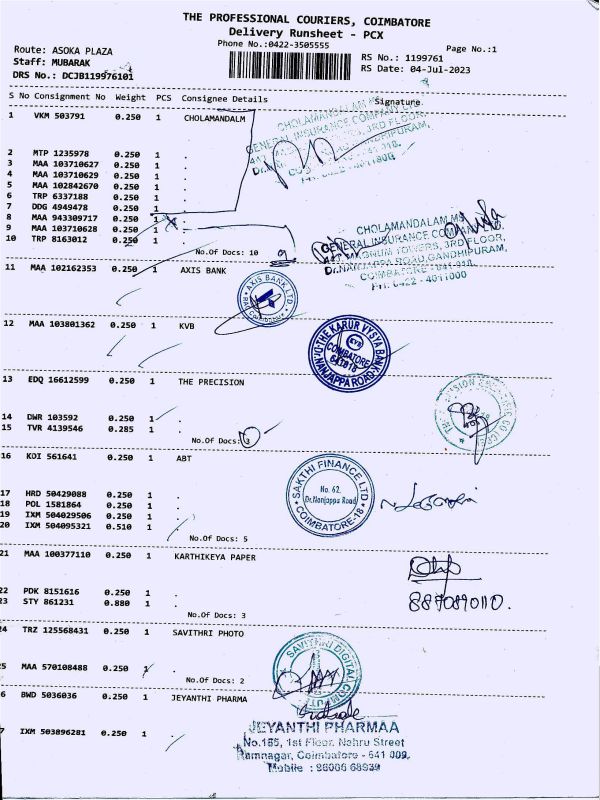 THE PROFESSIONAL COURIERS, COIMBATORE
Delivery Runsheet - PCX
Phone No.:0422-3505555
Page No.:1
Route: ASOKA PLAZA
Staff: MUBARAK
DRS No.: DCJB119976101
RS No.: 1199761
RS Date: 04-Jul-2023
S No Consignment No Weight PCS Consignee Details Signature
1 VKM 503791 0.250 1 CHOLAMANDALM
CHOLAMANDALAM MS
GENERAL INSURANCE COMPANY LTD
3RD FLOOR,
GANDHIPURAM,
2 MTP 1235978 0.250 1 .
3 MAA 103710627 0.250 1 .
4 MAA 103710629 0.250 1 .
5 MAA 102842670 0.250 1 .
6 TRP 6337188 0.250 1 .
7 DDG 4949478 0.250 1 .
8 MAA 943309717 0.250 1 .
9 MAA 103710628 0.250 1 .
10 TRP 8163012 0.250 1 .
No.Of Docs: 10 9
CHOLAMANDALAM MS
GENERAL INSURANCE COMPANY LTD.
MAGNUM TOWERS, 3RD FLOOR,
Dr.NANJAPPA ROAD, GANDHIPURAM,
COIMBATORE - 641 018.
PH: 0422 - 4011000
11 MAA 102162353 0.250 1 AXIS BANK
AXIS BANK LTD
12 MAA 103801362 0.250 1 KVB
THE KARUR VYSYA BANK
KVB
COIMBATORE
641018
Dr.NANJAPPA ROAD
13 EDQ 16612599 0.250 1 THE PRECISION
14 DWR 103592 0.250 1 .
15 TVR 4139546 0.285 1 .
No.Of Docs: 3
16 KDI 561641 0.250 1 ABT
SAKTHI FINANCE LTD
No. 62,
Dr.Nanjappa Road
COIMBATORE-18
17 HRD 50429088 0.250 1 .
18 POL 1581864 0.250 1 .
19 IXM 504029506 0.250 1 .
20 IXM 504095321 0.510 1 .
No.Of Docs: 5
21 MAA 100377110 0.250 1 KARTHIKEYA PAPER
22 PDK 8151616 0.250 1 .
23 STY 861231 0.880 1 .
8870890110.
No.Of Docs: 3
24 TRZ 125568431 0.250 1 SAVITHRI PHOTO
SAVITHRI DIGITAL
5 MAA 570108488 0.250 1 .
No.Of Docs: 2
6 BWD 5036036 0.250 1 JEYANTHI PHARMA
JEYANTHI PHARMAA
7 IXM 503896281 0.250 1 .
No.185, 1st Floor, Nehru Street
Ramnagar, Coimbatore - 641 009.
Mobile : 98006 68939